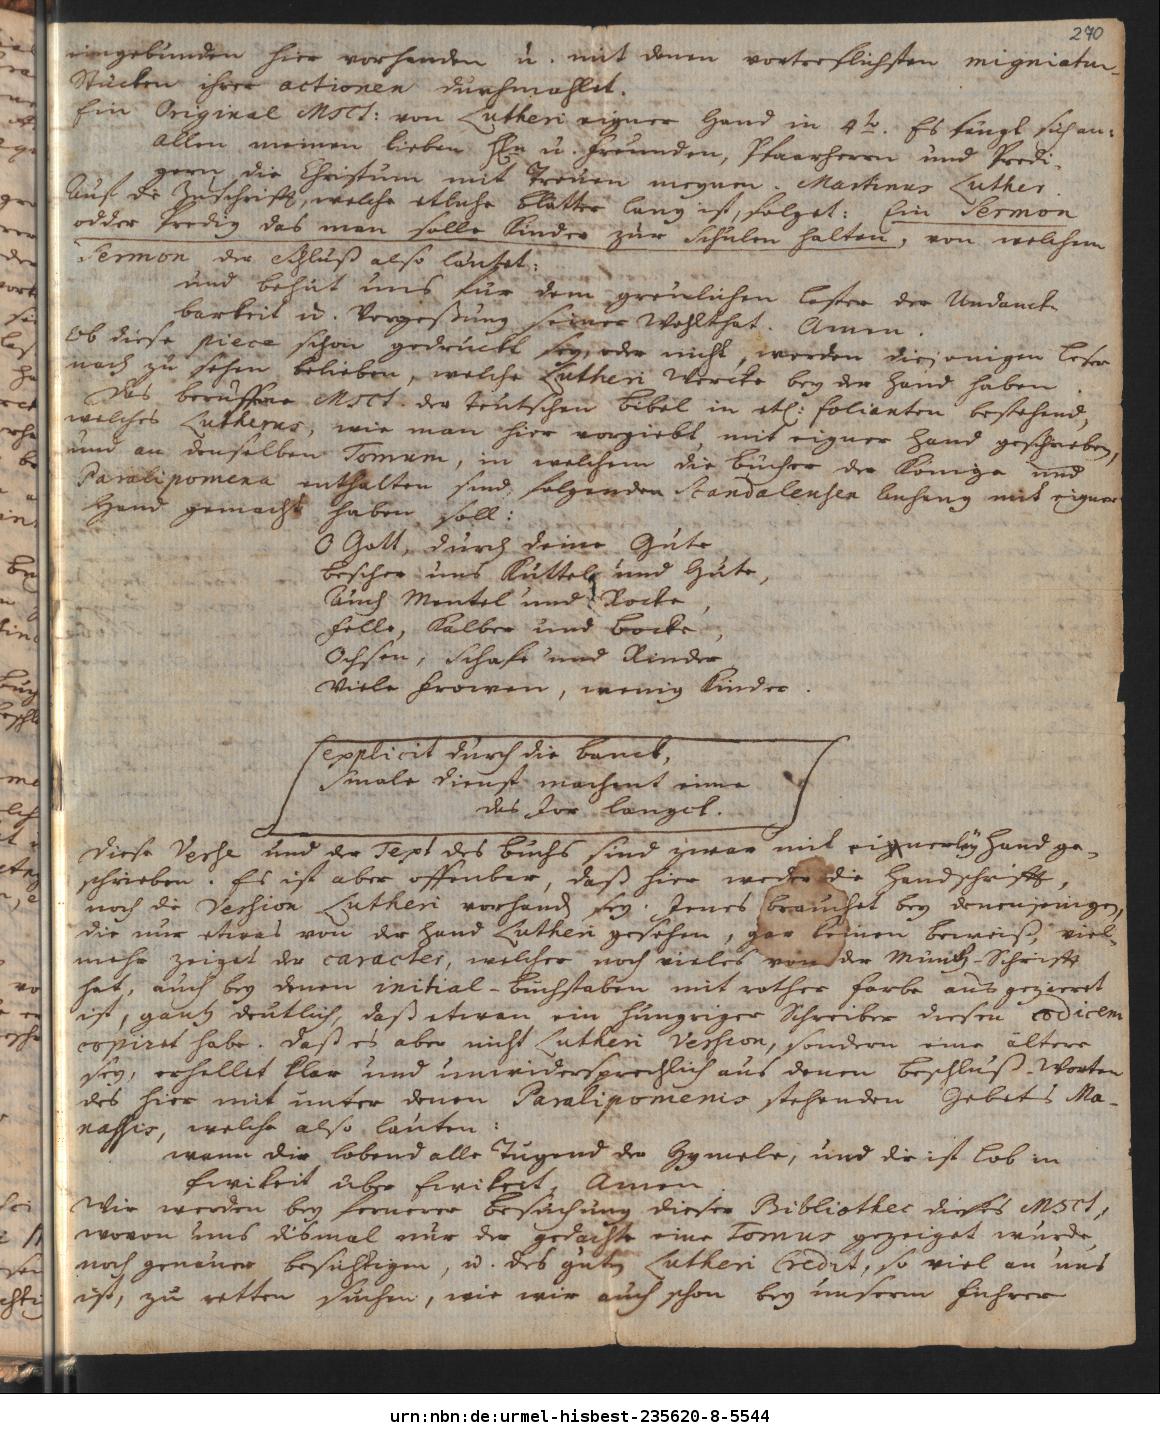 270
eingebunden hier vorhanden u. mit denen vortreflichsten migniatur-
Stücken ihrer actionen durchmahlet.
Ein Original MSCt: von Lutheri eigner Hand in 4to. Es fängt sich an:
Allen meinen lieben Hn u. freunden, Pfaarherrn und Predi-
gern die Christum mit Treüen meynen. Martinus Luther.
Auf die Zuschrifft, welche etliche blätter lang ist, folget: Ein Sermon
odder Predig das man solle Kinder zur Schulen halten, von welchem
Sermon der Schluß also lautet:
und behüt uns für dem greulichen laster der Undanck-
barkeit u. Vergeßung seiner Wohlthat. Amen.
Ob diese piece schon gedruckt sey, oder nicht, werden diejenigen leser
nach zu sehen belieben, welche Lutheri Wercke bey der Hand haben.
Das beruffene MSCt. der teutschen Bibel in etl: folianten bestehend,
welches Lutherus, wie man hier vorgiebt, mit eigner Hand geschrieben,
und an denselben Tomum, in welchem die bücher der Könige und
Paralipomena enthalten sind, folgenden Scandaleusen Anhang mit eigner
Hand gemacht haben soll:
O Gott, durch deine Güte
bescher uns Kuttel und Hüte,
Auch Mentel und Rocke,
Felle, Kalber und bocke,
Ochsen, Schafe und Rinder
Viele frowen, wenig Kinder.
explicit durch die banck,
smale dienst machent eime
das Jor langet.
Diese Verse und der Text des buchs sind zwar mit einerley Hand ge-
schrieben. Es ist aber offenbar, daß hier weder die Handschrifft,
noch die Version Lutheri vorhand sey. Jenes brauchet bey denenjenigen,
die nur etwas von der Hand Lutheri gesehen, gar keinen beweiß, viel-
mehr zeiget der caracter, welcher noch vieles von der Münch-Schrifft
hat, auch bey denen initial-buchstaben mit rother farbe ausgezieret
ist, gantz deutlich, daß etwan ein hungriger Schreiber diesen codicem
copiret habe. Daß es aber nicht Lutheri Version, sondern eine ältere
sey, erhellet klar und unwidersprechlich aus denen beschluß-Worten
des hier mit unter denen Paralipomenis stehenden Gebets Ma-
nassis, welche also lauten:
wann dir lobend alle Tugend der Hymele, und dir ist lob in
Ewikeit uber Ewikeit, Amen.
Wir werden bey fernerer besuchung dieser Bibliothec dieses MSCt,
wovon uns dismal nur der gedachte eine Tomus gezeiget wurde,
noch genauer besichtigen, u. des guten Lutheri Credit, so viel an uns
ist, zu retten suchen, wie wir auch schon bey unserm führer
urn:nbn:de:urmel-hisbest-235620-8-5544